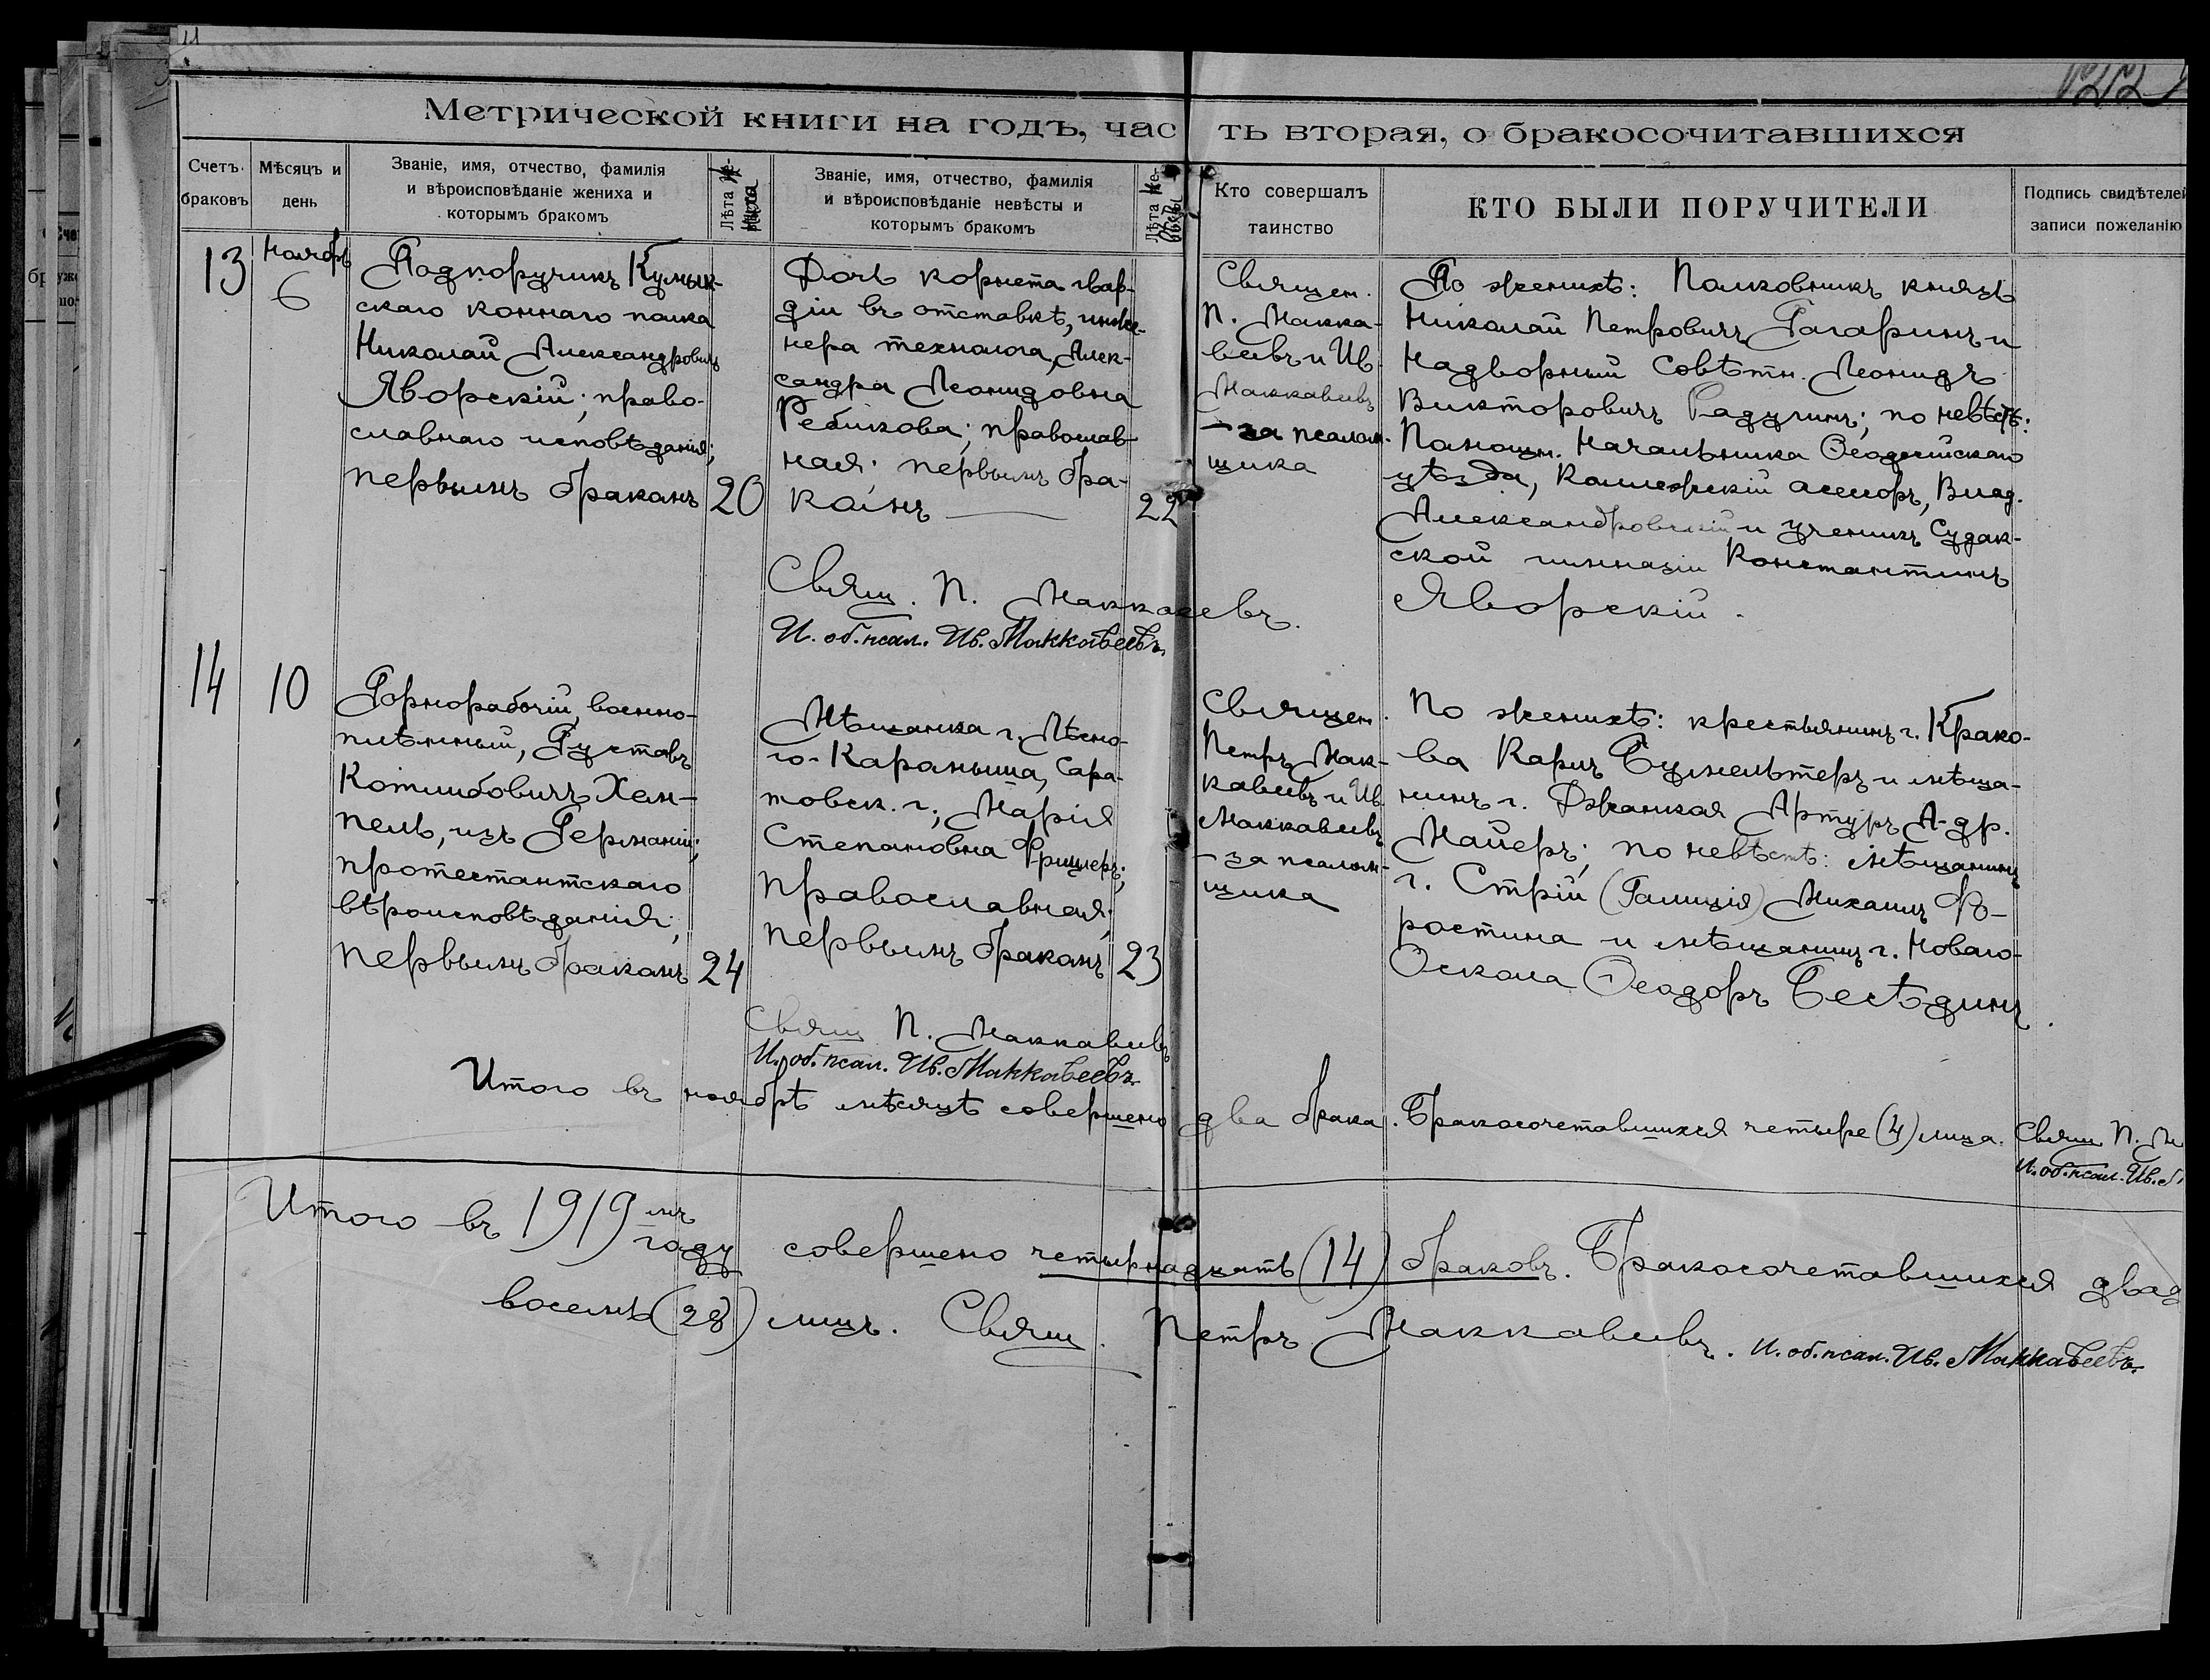 Метрической книги на годъ, часть вторая, о бракосочитавшихся
Счетъ браковъ
Мѣсяцъ и день
Званіе, имя, отчество, фамилія
и вѣроисповѣданіе жениха и
которымъ бракомъ
Лѣта жениха
Званіе, имя, отчество, фамилія
и вѣроисповѣданіе невѣсты и
которымъ бракомъ
Лѣта невѣсты
Кто совершалъ
таинство
КТО БЫЛИ ПОРУЧИТЕЛИ
Подпись свидѣтелей
записи пожеланію
13
Ноябрь
6
Подпоручикъ Кумык-
скаго коннаго полка
Николай Александровичъ
Яворскій; право-
славнаго исповѣданія;
первымъ бракомъ
20
Дочь корнета гвар-
діи въ отставкѣ, инже-
нера технолога, Алек-
сандра Леонидовна
Ребикова; православ-
ная; первымъ бра-
комъ
22
Священ.
П. Макка-
веевъ и Ив.
Маккавеевъ
— за псалом-
щика
По женихѣ: Полковникъ князь
Николай Петровичъ Гагаринъ и
Надворный Совѣтн. Леонидъ
Викторовичъ Радугинъ; по невѣстѣ:
Помощн. Начальника Ѳеодосійскаго
уѣзда, Коллежскій асессоръ, Влад.
Александровскій и ученикъ Судак-
ской гимназіи Константинъ
Яворскій.
Свящ. П. Маккавеевъ.
И. об. псал. Ив. Маккавеевъ.
14
10
Горнорабочій, военно-
плѣнный, Густавъ
Котлибовичъ Хем-
пель, изъ Германіи;
протестантскаго
вѣроисповѣданія;
первымъ бракомъ
24
Мѣщанка г. Лѣсно-
го-Карамыша, Сара-
товск. г., Марія
Степановна Фрицлеръ;
православная;
первымъ бракомъ
23
Священ.
Петръ Мак-
кавеевъ и Ив.
Маккавеевъ
— за псалом-
щика
По женихѣ: крестьянинъ г. Крако-
ва Карлъ Бумельтеръ и мѣща-
нинъ г. Джанкоя Артуръ А-др.
Майеръ; по невѣстѣ: мѣщанинъ
г. Стрій (Галиція) Михаилъ Фо-
ростина и мѣщанинъ г. Новаго-
Оскола Ѳеодоръ Бесѣдинъ.
Свящ П. Маккавеевъ
И. об. псал. Ив. Маккавеевъ.
Итого въ ноябрѣ мѣсяцѣ совершено два брака. Бракосочетавшихся четыре (4) лица. Свящ. П. М
И. об. псал. Ив.
Итого въ 1919 мъ году совершено четырнадцать (14) браковъ. Бракосочетавшихся двад
восемь (28) лицъ. Свящ. Петръ Маккавеевъ. И. об. псал. Ив. Маккавеевъ.